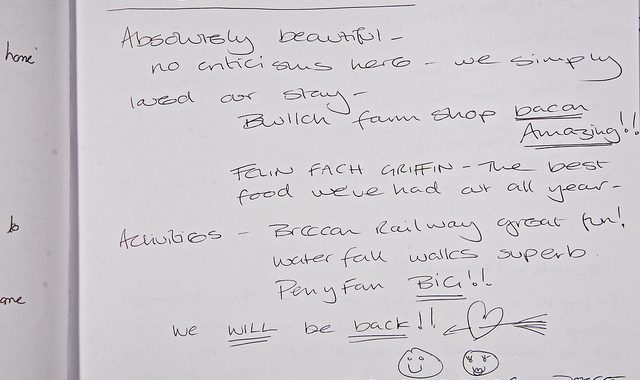 Absolutely beautiful -
no criticisms here - we simply
loved our stay -
Bwlch farm shop bacon
Amazing!!
FELIN FACH GRIFFIN - The best
food we've had out all year -
Activities - Breccan Railway great fun!
waterfall walks superb
Pen y Fan BIG!!
we WILL be back!!
home
b
ame